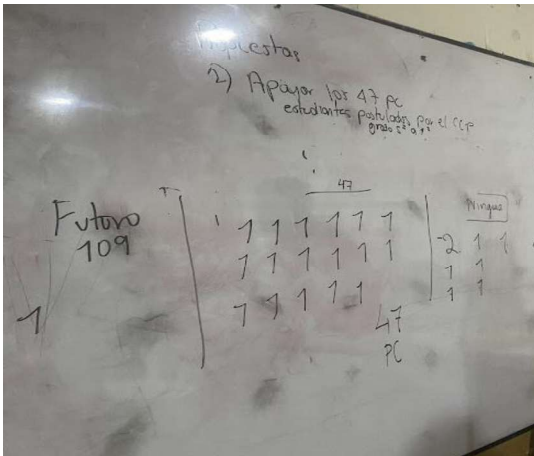 Propuestas
2) Apoyar los 47 PC
estudiantes postulados por el CCP
47
Futuro
109
1
1 1 1 1 1 1
1 1 1 1 1 1
1 1 1 1 1
47
PC
Ningun
2 1 1
1 1
1 1